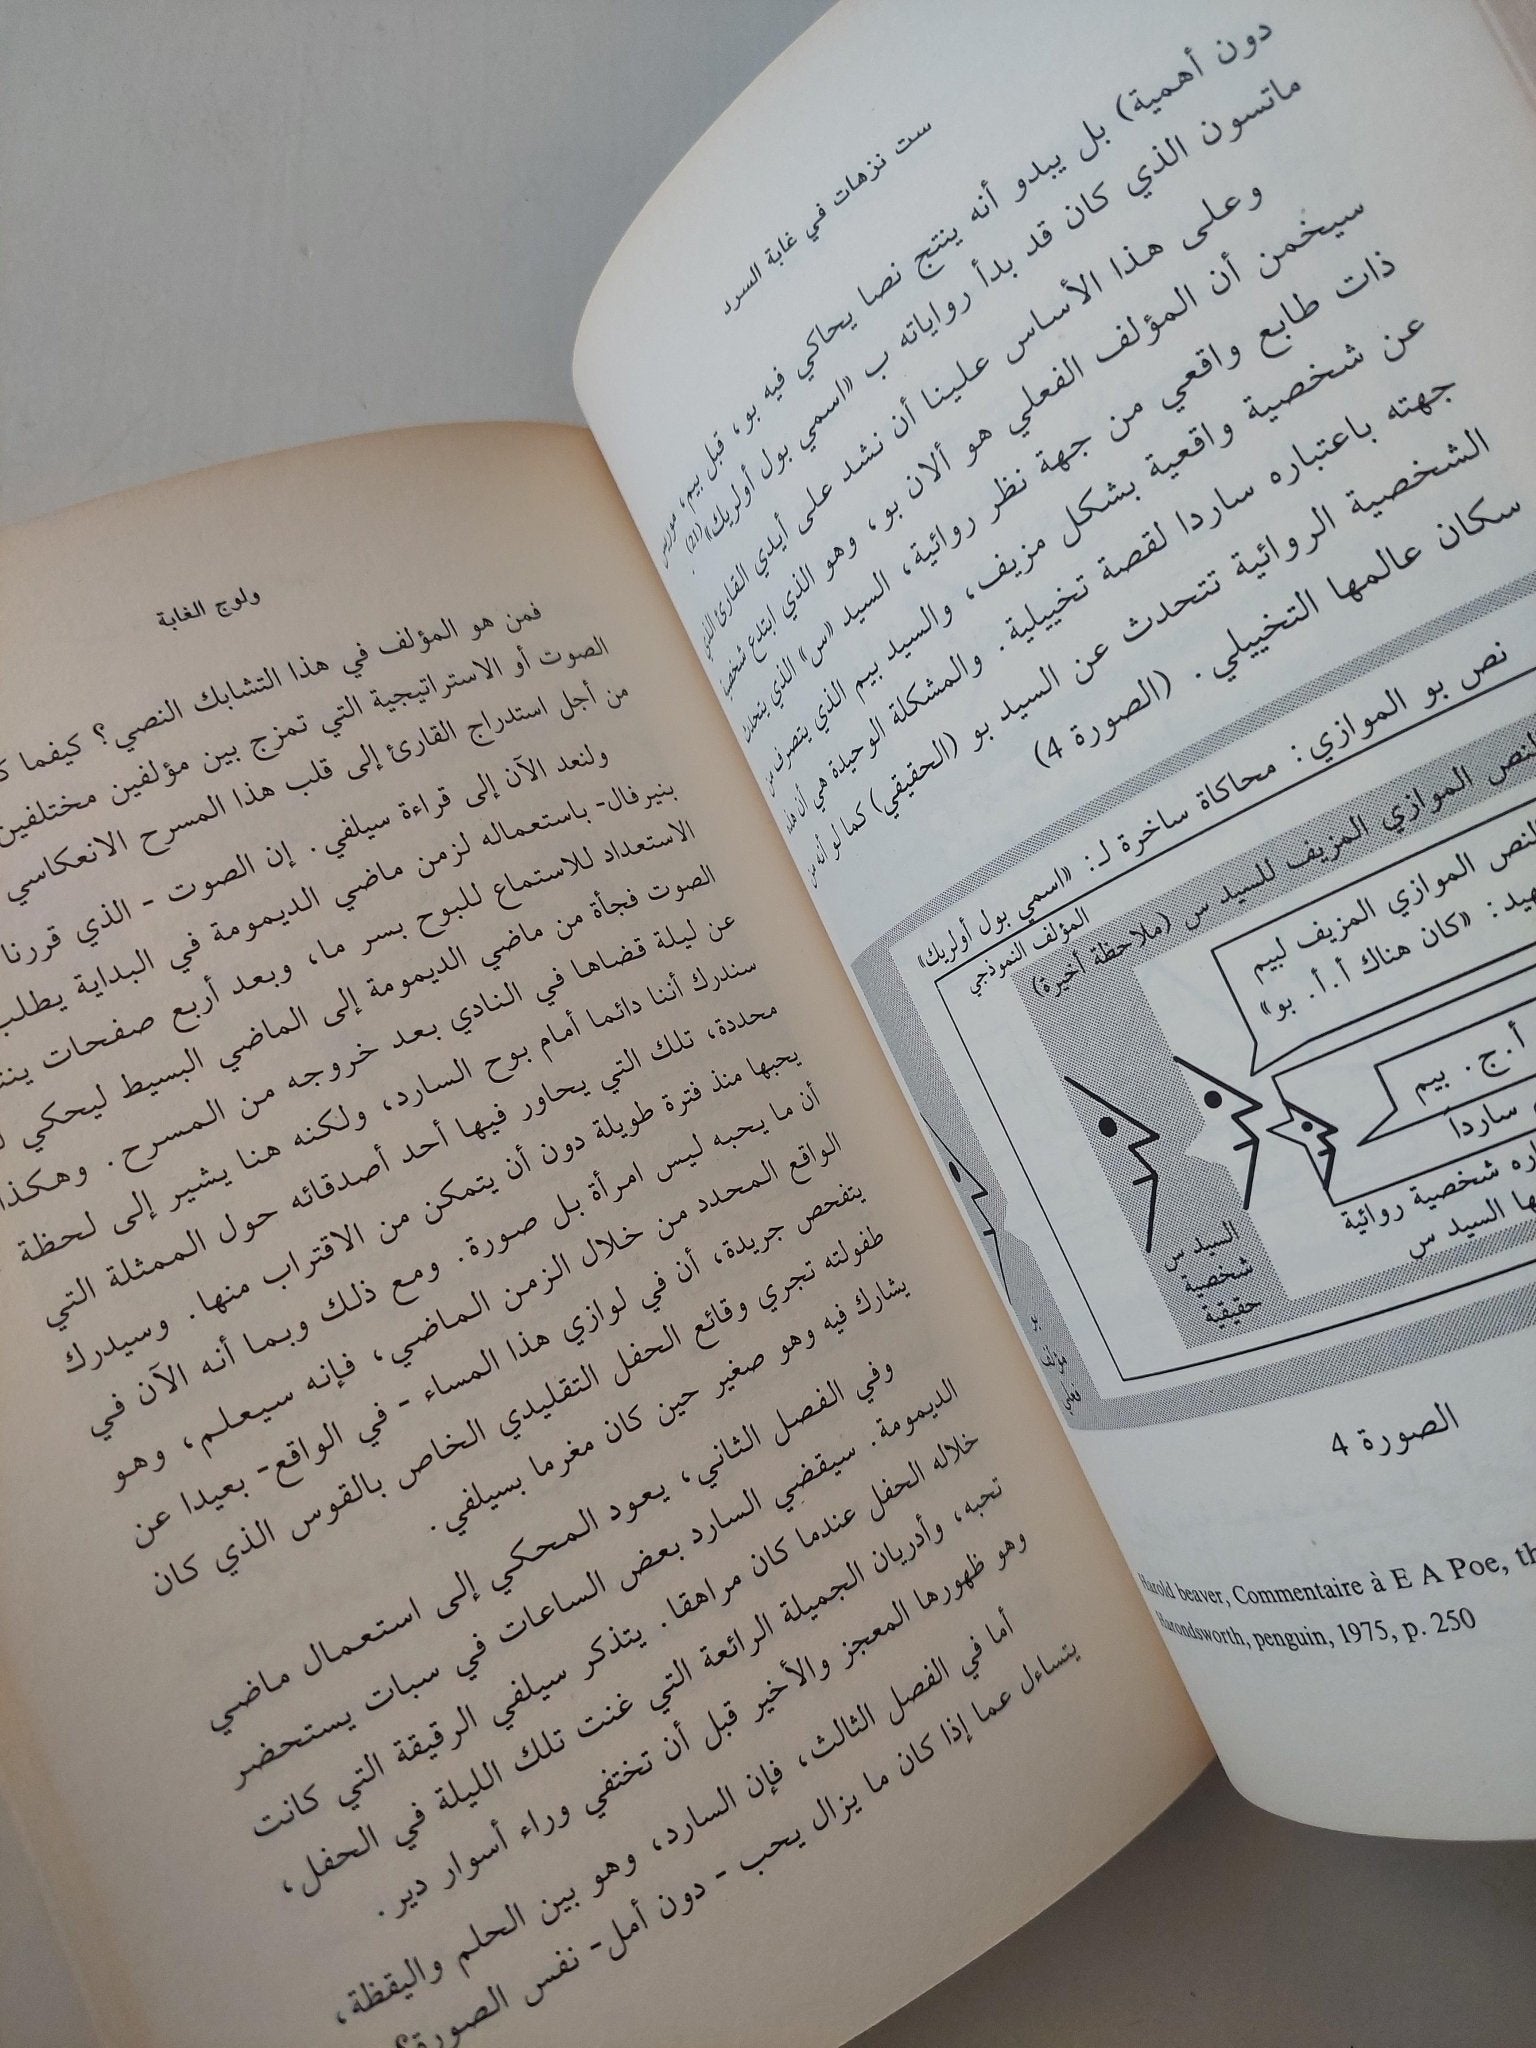 ست نزهات في غابة السرد
دون أهمية) بل يبدو أنه ينتج نصا يحاكي فيه بو، قبل بيم، موريس
ماتسون الذي كان قد بدأ رواياته ب «اسمي بول أولريك»(21).
وعلى هذا الأساس علينا أن نشد على أيدي القارئ الذي
سيخمن أن المؤلف الفعلي هو ألان بو، وهو الذي ابتدع شخصية
ذات طابع واقعي من جهة نظر روائية، السيد «س» الذي يتحدث
عن شخصية واقعية بشكل مزيف، والسيد بيم الذي يتصرف من
جهته باعتباره ساردا لقصة تخييلية. والمشكلة الوحيدة هي أن هذه
الشخصية الروائية تتحدث عن السيد بو (الحقيقي) كما لو أنه من
سكان عالمها التخييلي. (الصورة 4)
نص بو الموازي: محاكاة ساخرة لـ: «اسمي بول أولريك»
المؤلف النموذجي
النص الموازي المزيف للسيد س (ملاحظة أخيرة)
النص الموازي المزيف لبيم
«كان هناك أ.أ. بو»
أ.ج. بيم
ساردا
شخصية روائية
السيد س
السيد س
شخصية
حقيقية
بو
مؤلف
فعلي
الصورة 4
Harold beaver, Commentaire à E A Poe,
Harondsworth, penguin, 1975, p. 250
ولوج الغابة
فمن هو المؤلف في هذا التشابك النصي؟ كيفما
الصوت أو الاستراتيجية التي تمزج بين مؤلفين مختلفين
من أجل استدراج القارئ إلى قلب هذا المسرح الانعكاسي
ولنعد الآن إلى قراءة سيلفي. إن الصوت - الذي قررنا
بنيرفال- باستعماله لزمن ماضي الديمومة في البداية يطلب
الاستعداد للاستماع للبوح بسر ما، وبعد أربع صفحات
الصوت فجأة من ماضي الديمومة إلى الماضي البسيط ليحكي
عن ليلة قضاها في النادي بعد خروجه من المسرح. وهكذا
سندرك أننا دائما أمام بوح السارد، ولكنه هنا يشير إلى لحظة
محددة، تلك التي يحاور فيها أحد أصدقائه حول الممثلة التي
يحبها منذ فترة طويلة دون أن يتمكن من الاقتراب منها. وسيدرك
أن ما يحبه ليس امرأة بل صورة. ومع ذلك وبما أنه الآن في
الواقع المحدد من خلال الزمن الماضي، فإنه سيعلم، وهو
يتفحص جريدة، أن في لوازي هذا المساء - في الواقع- بعيدا عن
طفولته تجري وقائع الحفل التقليدي الخاص بالقوس الذي كان
يشارك فيه وهو صغير حين كان مغرما بسيلفي.
وفي الفصل الثاني، يعود المحكي إلى استعمال ماضي
الديمومة. سيقضي السارد بعض الساعات في سبات يستحضر
خلاله الحفل عندما كان مراهقا. يتذكر سيلفي الرقيقة التي كانت
تحبه، وأدريان الجميلة الرائعة التي غنت تلك الليلة في الحفل،
وهو ظهورها المعجز والأخير قبل أن تختفي وراء أسوار دير.
أما في الفصل الثالث، فإن السارد، وهو بين الحلم واليقظة،
يتساءل عما إذا كان ما يزال يحب - دون أمل- نفس الصورة؟